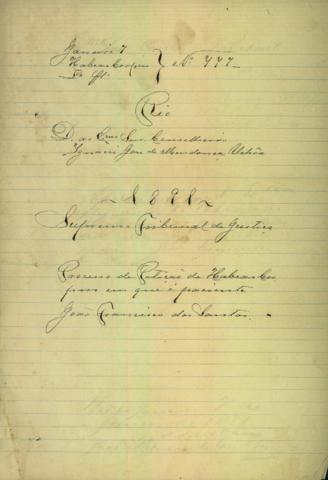 Janeiro 7
Habeas Corpus
Nº 777
Rio
D. ao Exmo Snr. Conselheiro
Ignacio José de Mendonça Uchôa
1891
Supremo Tribunal de Justiça
Processo de Petição de Habeas Cor
pus em que é paciente
João Francisco dos Santos.